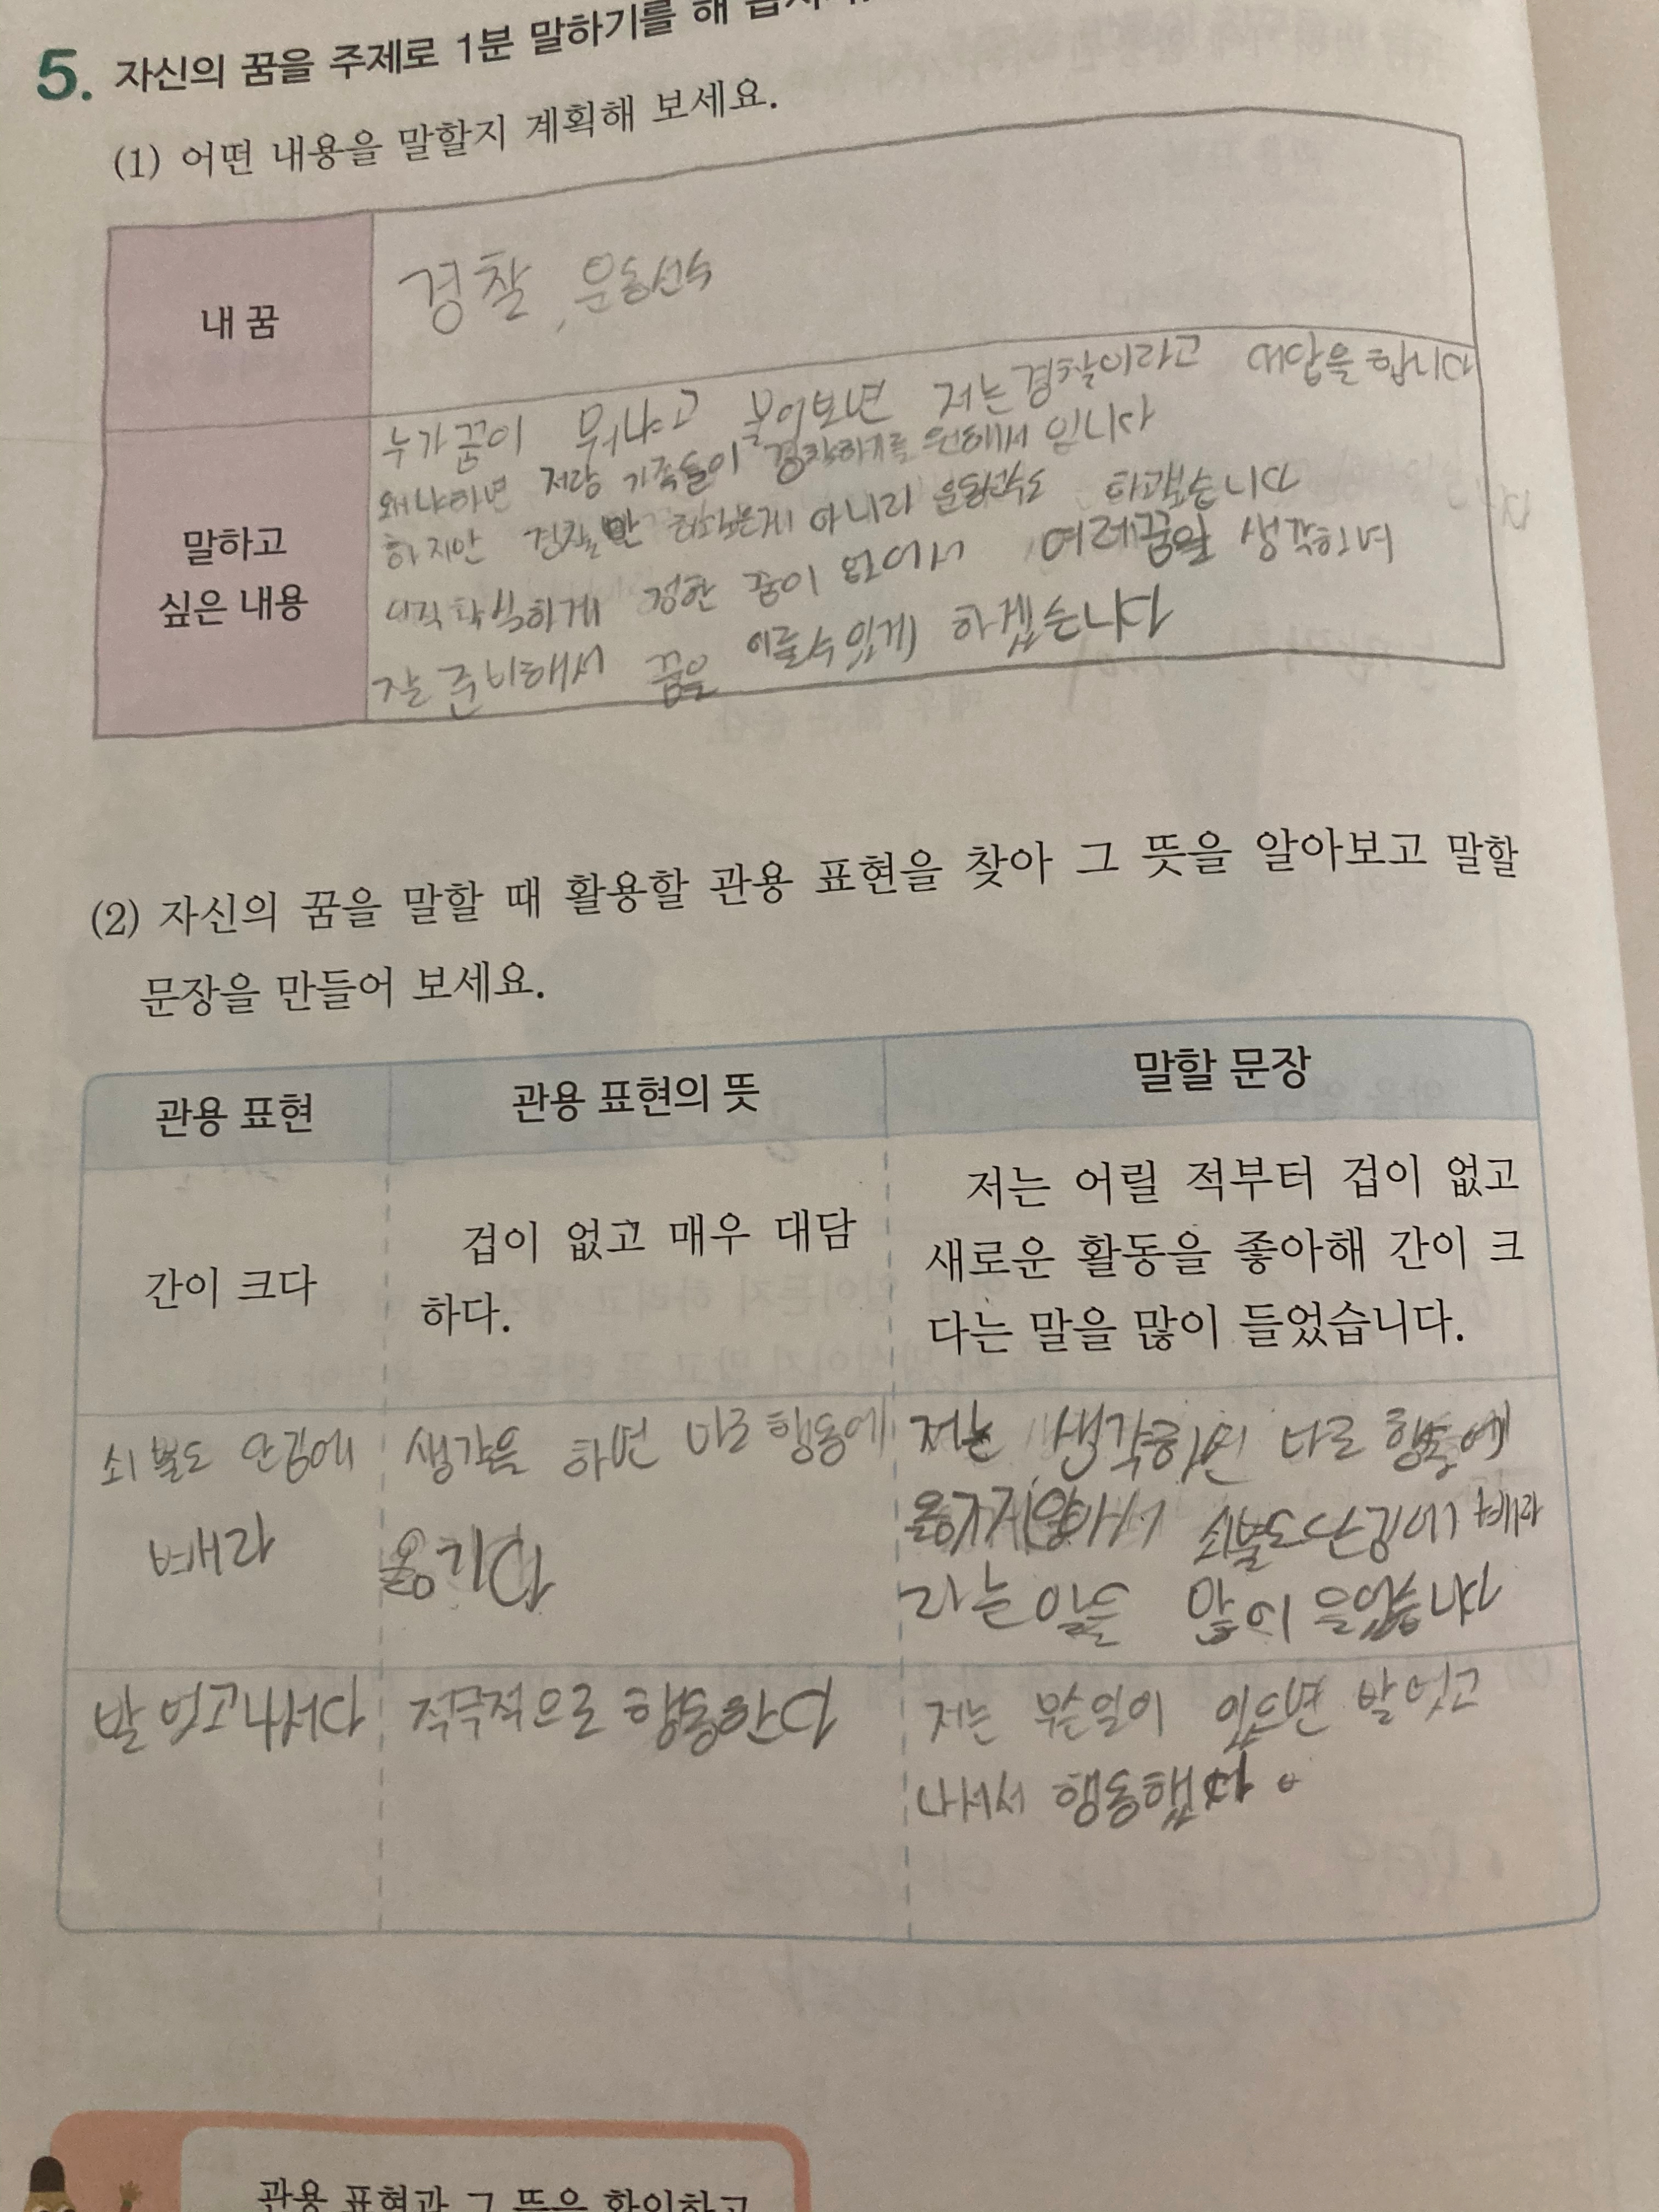 5. 자신의 꿈을 주제로 1분 말하기를 해
(1) 어떤 내용을 말할지 계획해 보세요.
내 꿈
경찰, 운동선수
말하고
싶은 내용
누가꿈이 뭐냐고 물어보면 저는경찰이라고 대답을 합니다
왜냐하면 저랑 가족들이 경찰하기를 원해서 입니다
하지만 경찰만 하고싶은게 아니라 운동선수도
정한 꿈이 없어서 여러꿈을 생각하며
잘 준비해서 꿈을 이룰수있게 하겠습니다
(2) 자신의 꿈을 말할 때 활용할 관용 표현을 찾아 그 뜻을 알아보고 말할
문장을 만들어 보세요.
관용 표현
관용 표현의 뜻
말할 문장
간이 크다
겁이 없고 매우 대담
하다.
저는 어릴 적부터 겁이 없고
새로운 활동을 좋아해 간이 크
다는 말을 많이 들었습니다.
쇠뿔도 단김에
빼라
생각을 하면 바로 행동에
옮기다
저는 생각하면 바로 행동에
쇠뿔도단김에 빼라
라는 많이
발 벗고나서다
적극적으로 행동한다
저는 무슨일이 있으면 발 벗고
나서서 행동합니다.
관용 표현과 그 뜻을 확인하고